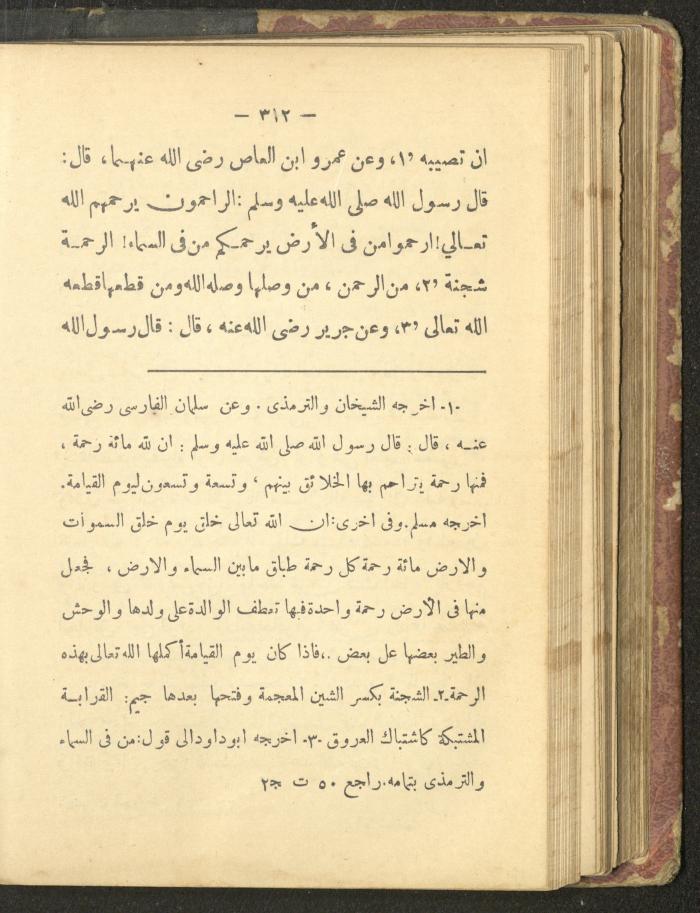 — ٣١٢ —
ان تصيبه «١» وعن عمرو ابن العاص رضى الله عنهما، قال:
قال رسول الله صلى الله عليه وسلم :الراحمون يرحمهم الله
تعالي!ارحموا من فى الأرض يرحمكم من فى السماء! الرحمة
شجنة «٢» من الرحمن ، من وصلها وصله الله ومن قطعها قطعه
الله تعالى «٣» وعن جرير رضى الله عنه ، قال : قال رسول الله
-١- اخرجه الشيخان والترمذى . وعن سلمان الفارسى رضى الله
عنه ، قال : قال رسول الله صلى الله عليه وسلم : ان لله مائة رحمة ،
فمنها رحمة يتراحم بها الخلائق بينهم ، وتسعة وتسعون ليوم القيامة.
اخرجه مسلم.وفى اخرى:ان الله تعالى خلق يوم خلق السموات
والارض مائة رحمة كل رحمة طباق مابين السماء والارض ، فجعل
منها فى الأرض رحمة واحدة فبها تعطف الوالدة على ولدها والوحش
والطير بعضها عل بعض .،فاذا كان يوم القيامة أكملها الله تعالى بهذه
الرحمة -٢- الشجنة بكسر الشين المعجمة وفتحها بعدها جيم: القرابة
المشتبكة كاشتباك العروق -٣- اخرجه ابوداود الى قول:من فى السماء
والترمذى بتمامه.راجع ٥٠ ت ج٢